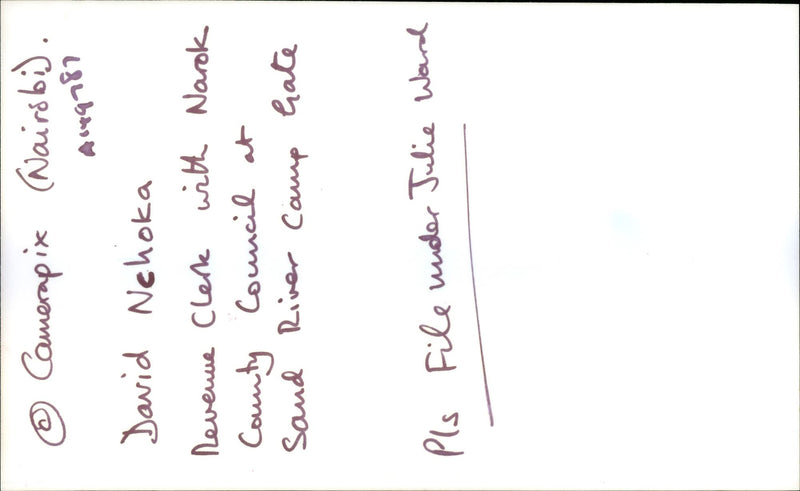 © Camerapix (Nairobi).
A1149787
David Nchoka
Revenue Clerk with Narok
County Council at
Sand River Camp Gate
Pls File under Julie Ward